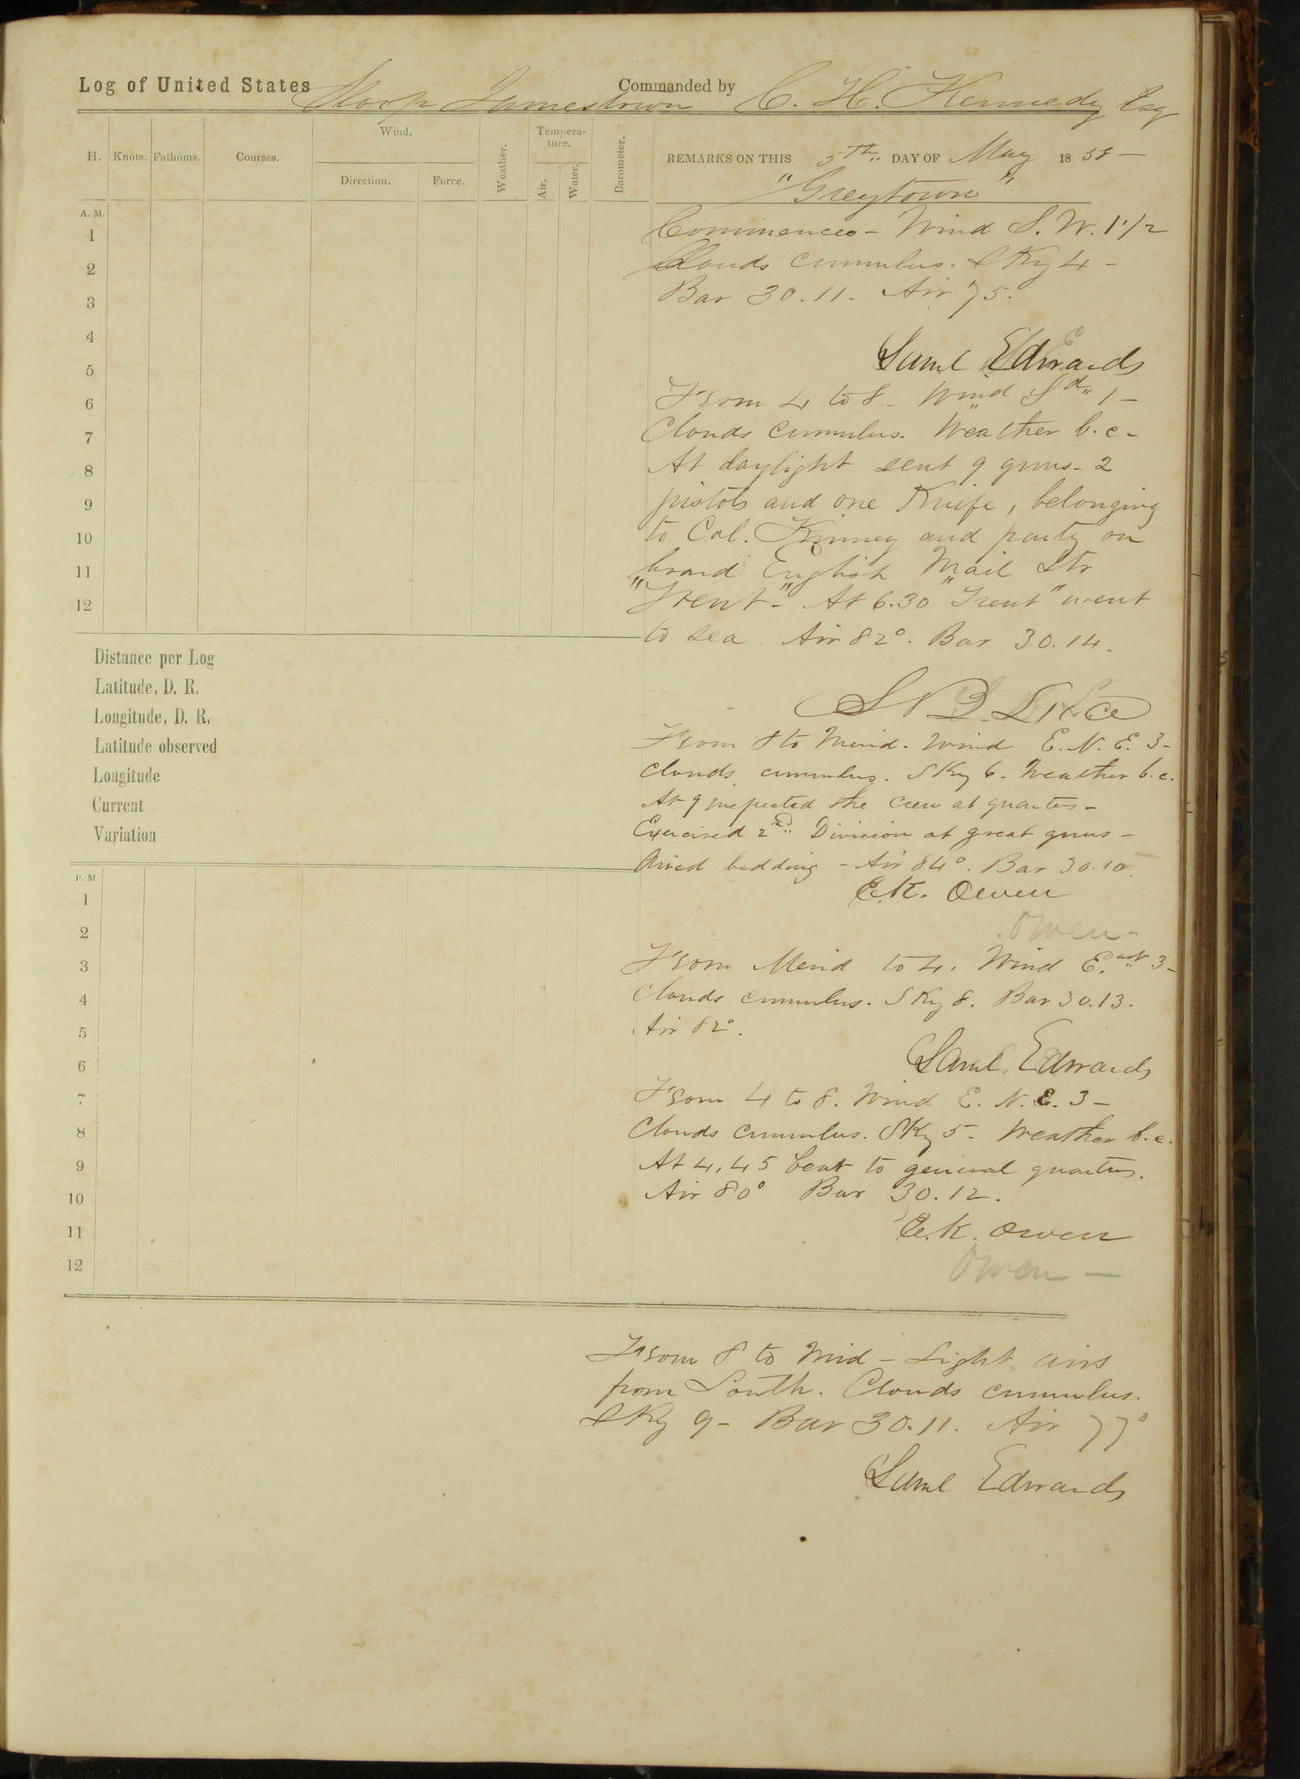 Log of United States Sloop Jamestown Commanded by C. H. Kennedy Esq
H. Knots. Fathoms. Courses. Wind. Direction. Force. Weather. Tempera-ture. Air. Water. Barometer.
REMARKS ON THIS 5th" DAY OF May 1858 —
"Greytown"
A. M.
Commences - Wind S. W. 1 1/2
Clouds cumulus. Sky 4 -
Bar 30.11. Air 75.
Saml Edwards
From 4 to 8 - Wind Sd" 1 -
Clouds cumulus. Weather b.c -
At daylight sent 9 guns - 2
pistols and one Knife, belonging
to Col. Kinney and party on
board English Mail Str
"Trent" - At 6.30 "Trent" went
to sea. Air 82°. Bar 30.14.
From 8 to Merid. Wind E. N. E. 3 -
Clouds cumulus. Sky 6 - Weather b.c.
At 9 inspected the crew at quarters -
Exercised 2nd" Division at great guns -
Aired bedding - Air 84°. Bar 30.10.
E.K. Owen
Owen -
From Merid to 4. Wind East" 3 -
Clouds cumulus. Sky 8. Bar 30.13.
Air 82°.
Saml. Edwards
From 4 to 8. Wind E. N. E. 3 -
Clouds cumulus. Sky 5 - Weather b.c.
At 4.45 beat to general quarters.
Air 80° Bar 30.12.
E.K. Owen
Owen —
From 8 to Mid - Light airs
from South. Clouds cumulus.
Sky 9 - Bar 30.11. Air 77°
Saml Edwards
1
2
3
4
5
6
7
8
9
10
11
12
Distance per Log
Latitude, D. R.
Longitude, D. R.
Latitude observed
Longitude
Current
Variation
P. M
1
2
3
4
5
6
7
8
9
10
11
12